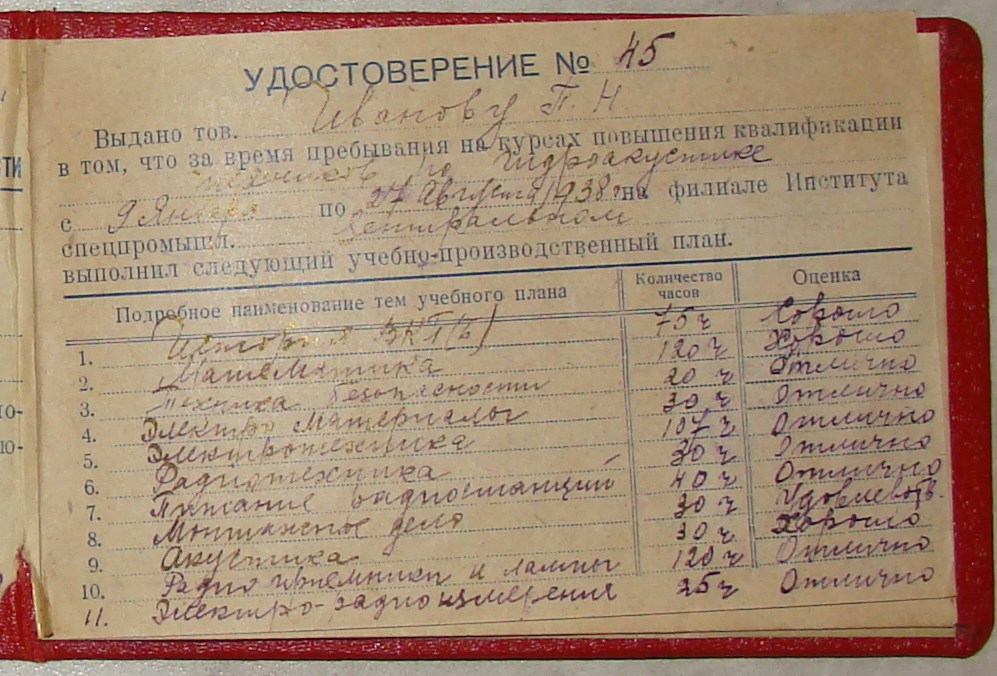 УДОСТОВЕРЕНИЕ № 45
Выдано тов. Иванову П. Н.
в том, что за время пребывания на курсах повышения квалификации
техников по гидроакустике
с 9 Января по 27 Августа 1938 г. на филиале Института
спецпромышл. Центральном
выполнил следующий учебно-производственный план.
Подробное наименование тем учебного плана Количество часов Оценка
1. История ВКП(б) 75 ч Хорошо
2. Математика 120 ч Хорошо
3. Техника безопасности 20 ч Отлично
4. Электро материалы 30 ч Отлично
5. Электротехника ч Отлично
6. Радиотехника 30 ч Отлично
7. Питание радиостанций 40 ч Отлично
8. Монтажное дело 30 ч Удовлетв.
9. Акустика 30 ч Хорошо
10. Радио приемники и лампы 120 ч Отлично
11. Электро-радиоизмерения 25 ч Отлично
ТИ
ю-
ю-